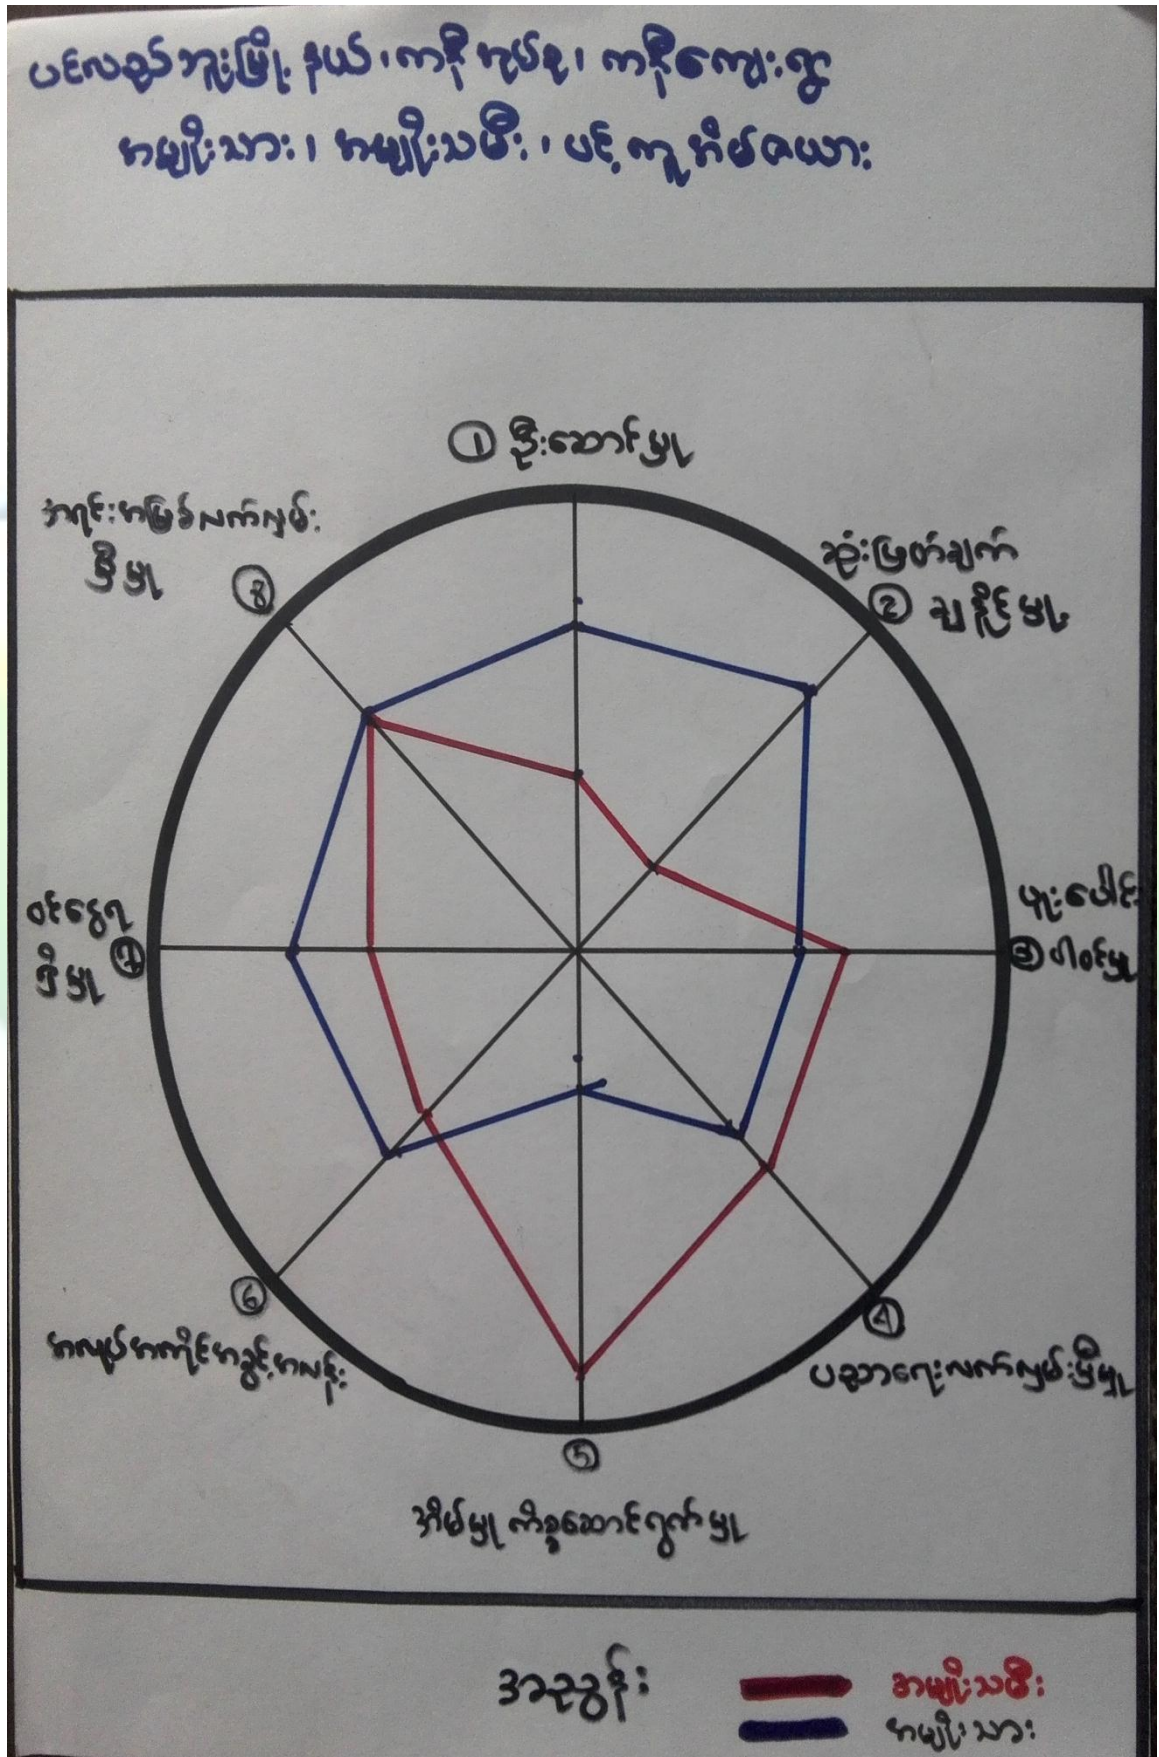 ပင်လည်ဘူးမြို့နယ်၊ ကနီအုပ်စု၊ ကနီကျေးရွာ
အမျိုးသား၊ အမျိုးသမီး၊ ပင့်ကူအိမ်ဇယား
① ဦးဆောင်မှု
ဆုံးဖြတ်ချက်
② ချနိုင်မှု
ပူးပေါင်း
③ ပါဝင်မှု
④
ပညာရေးလက်လှမ်းမှီမှု
⑤
အိမ်မှုကိစ္စဆောင်ရွက်မှု
⑥
အလုပ်အကိုင်အခွင့်အလန်း
ဝင်ငွေရ
ရှိမှု ⑦
အရင်းအမြစ်လက်လှမ်း
မှီမှု ⑧
အညွှန်း
အမျိုးသမီး
အမျိုးသား